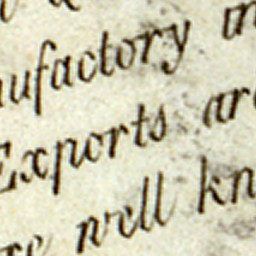 ufactory in
Exports are
well kn